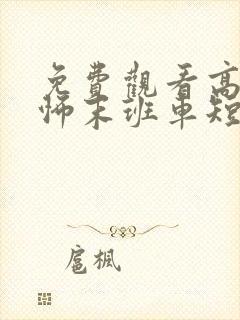 免費觀看高
師末班車短
扈楓